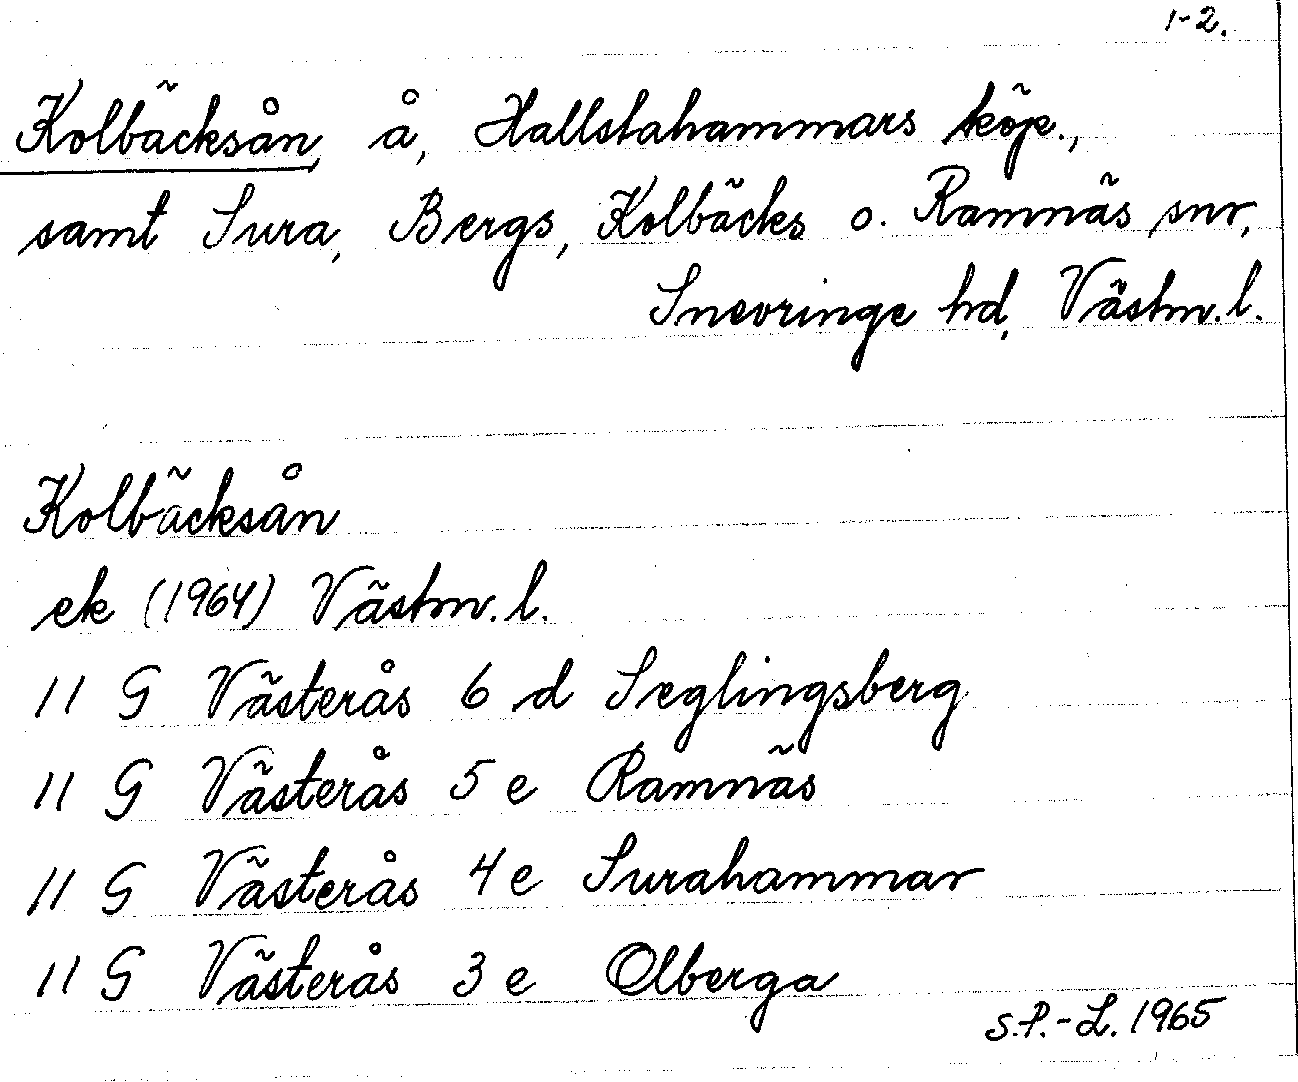 1-2.
Kolbäcksån, å, Hallstahammars köp.,
samt Sura, Bergs, Kolbäcks o. Ramnäs snr,
Snevringe hd, Västm. l.
Kolbäcksån
ek (1964) Västm. l.
11 G Västerås 6 d Seglingsberg
11 G Västerås 5 e Ramnäs
11 G Västerås 4 e Surahammar
11 G Västerås 3 e Olberga
S.P.-L. 1965